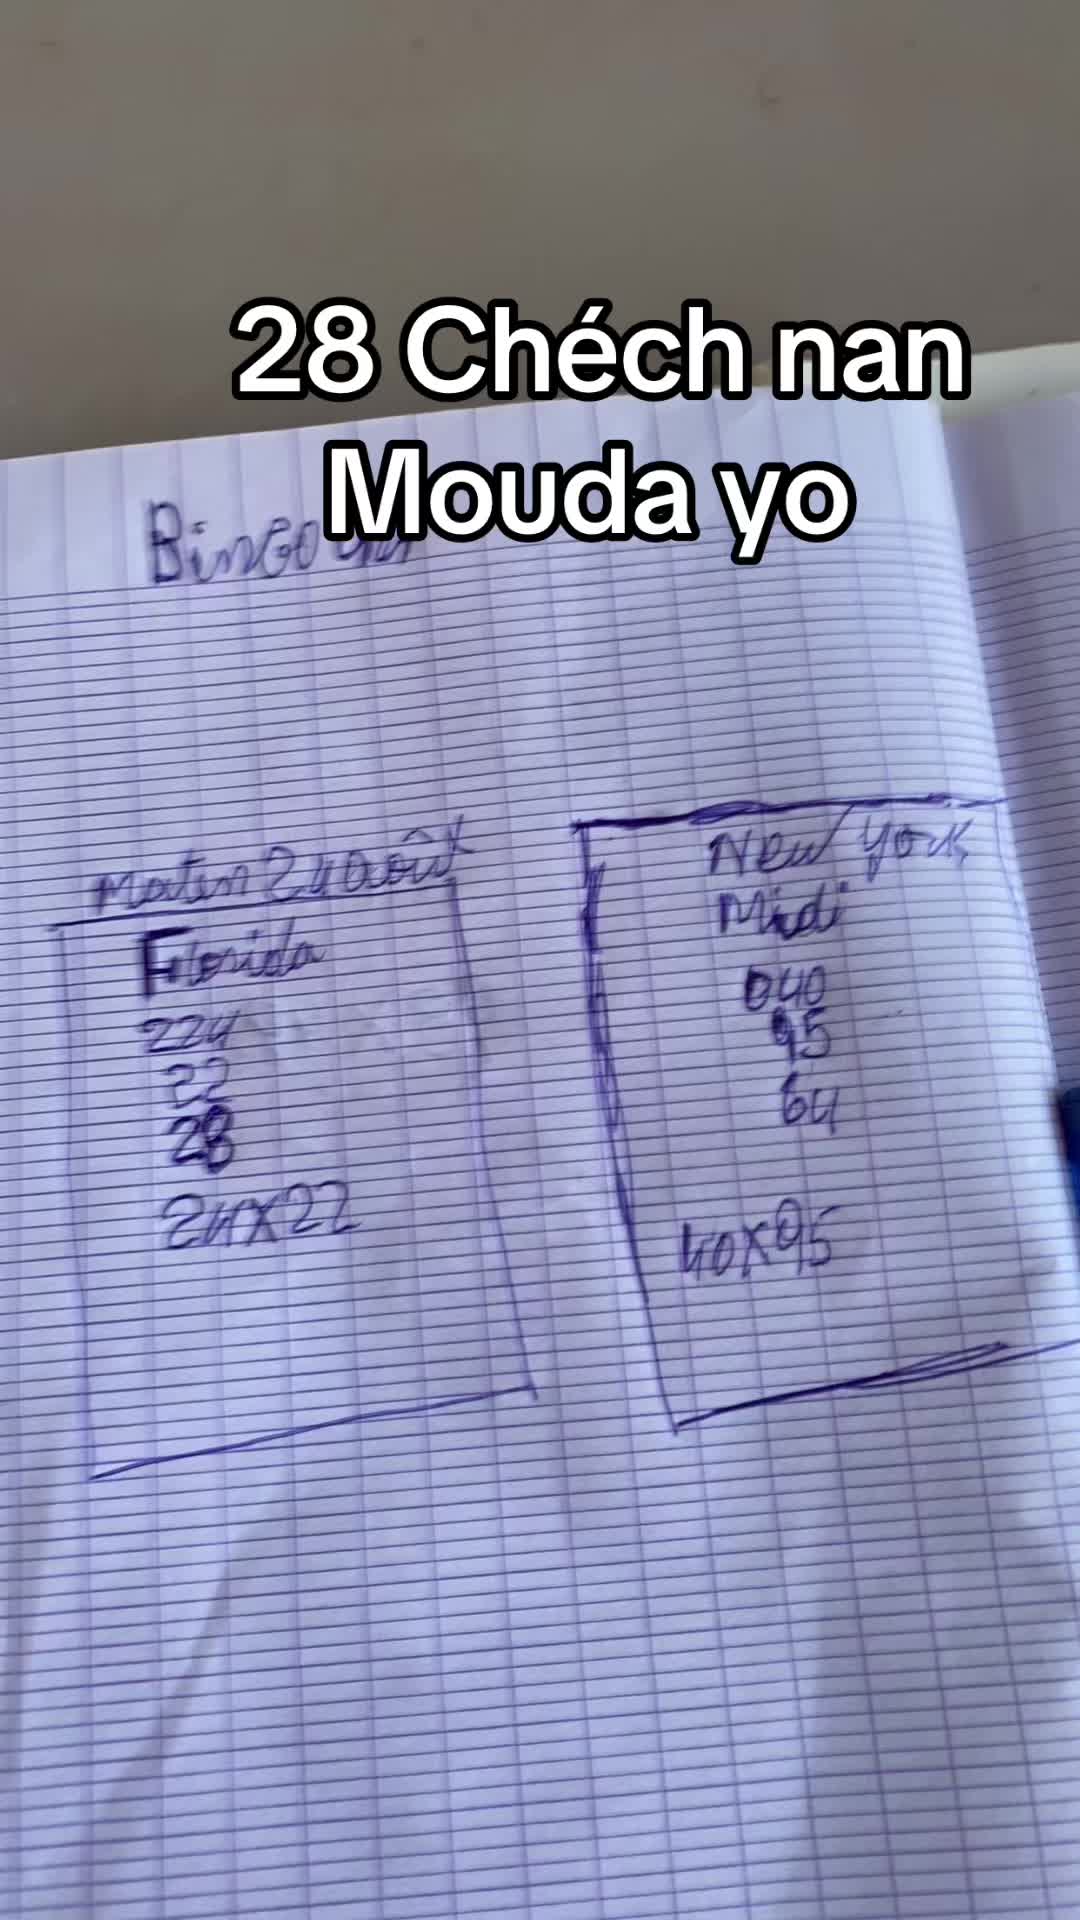 28 Chéch nan
Mouda yo
BinGo
Maten 24 août
Florida
224
22
28
24x22
New york
Midi
040
95
64
40x95